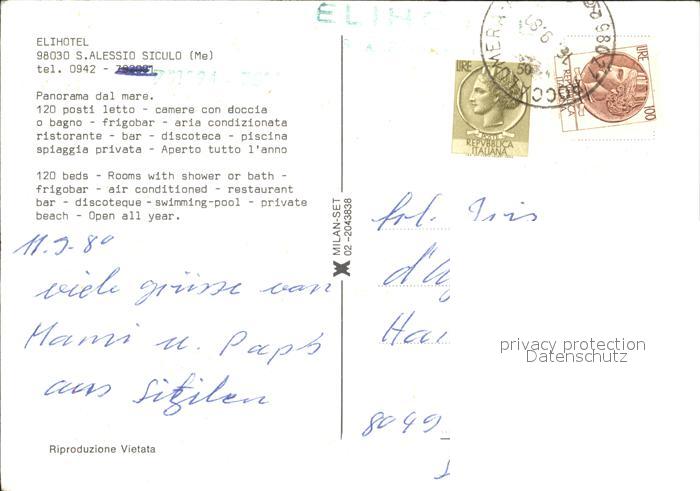 ELIHOTEL
98030 S.ALESSIO SICULO (Me)
tel. 0942 -
Panorama dal mare.
120 posti letto - camere con doccia
o bagno - frigobar - aria condizionata
ristorante - bar - discoteca - piscina
spiaggia privata - Aperto tutto l'anno
120 beds - Rooms with shower or bath -
frigobar - air conditioned - restaurant
bar - discoteque -swimming-pool - private
beach - Open all year.
11.9-80
viele grüsse von
Mami u. Papi
aus Sizilien
Riproduzione Vietata
MILAN-SET
02 -2043838
ELIHO
LIRE 50
REPVBBLICA
ITALIANA
LIRE 100
frl. Iris
d'A
Ha
8049
privacy protection
Datenschutz